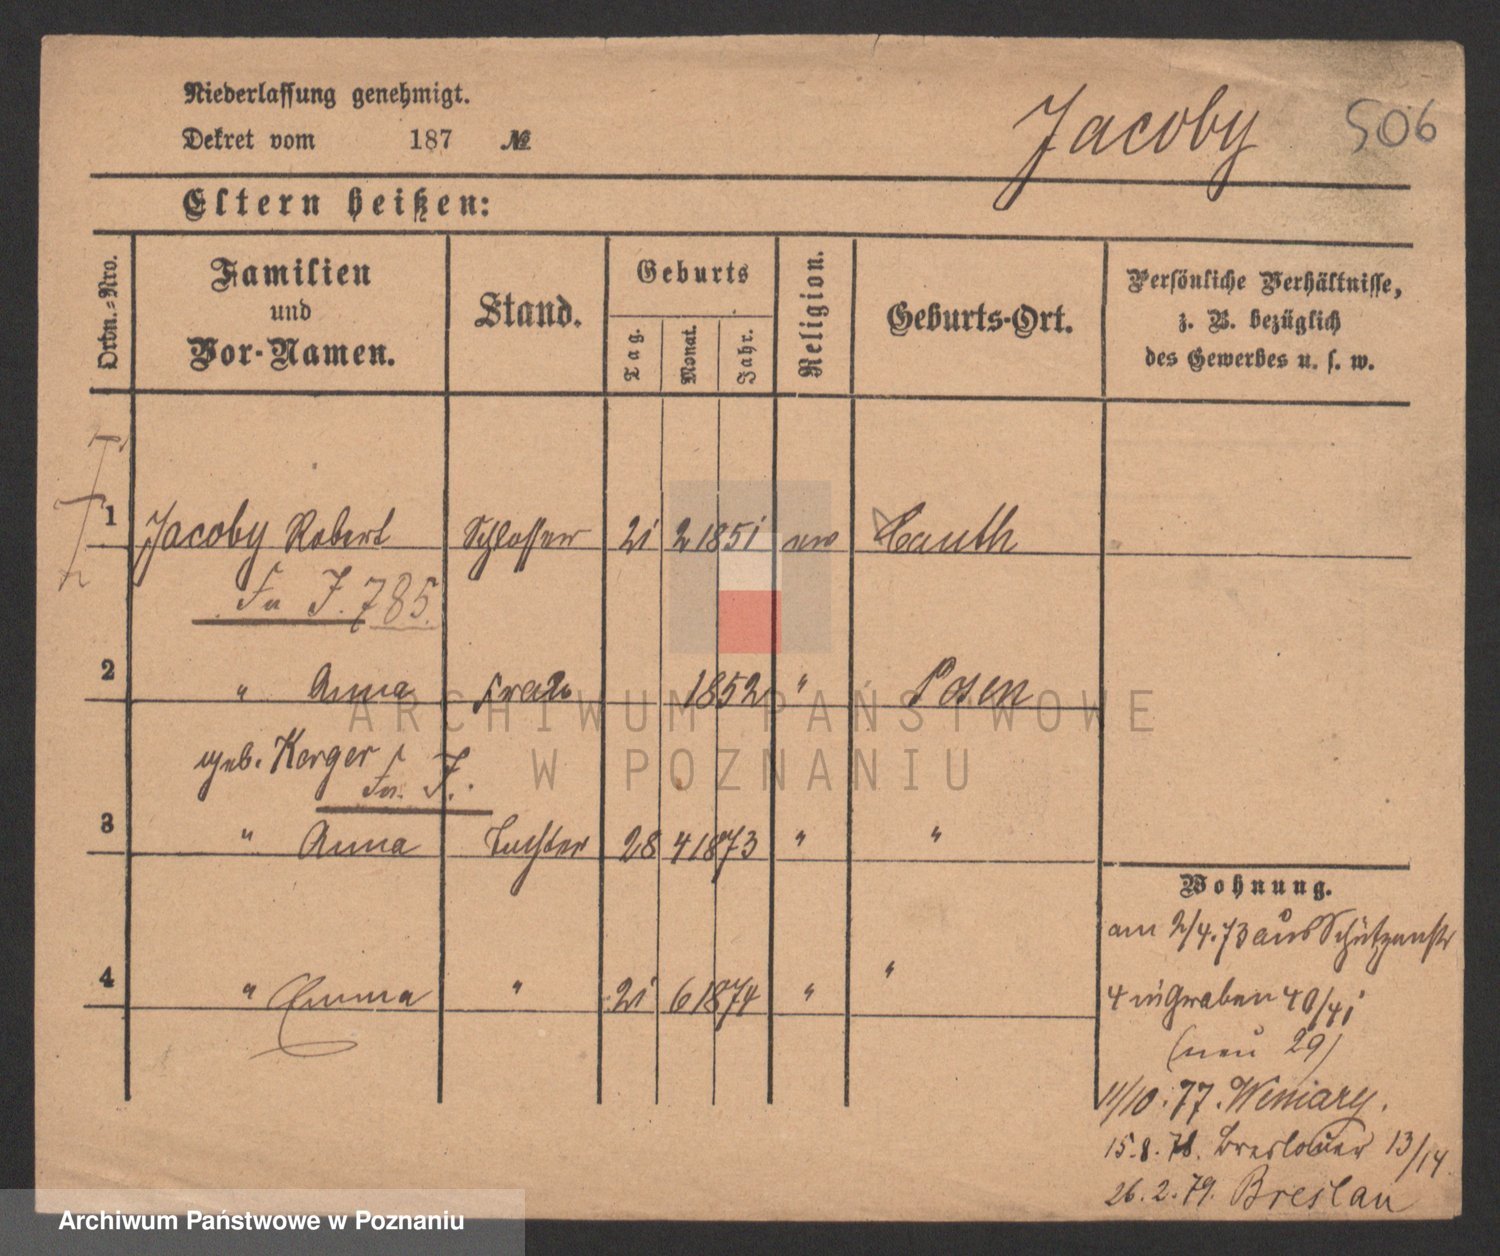 Niederlassung genehmigt.
Dekret vom 187 №
Jacoby 506
Eltern heißen:
Ordn.-Nro.
Familien
und
Vor-Namen.
Stand.
Geburts
Tag.
Monat.
Jahr.
Religion.
Geburts-Ort.
Persönliche Verhältnisse,
z. B. bezüglich
des Gewerbes u. s. w.
1 Jacoby Robert Schlosser 21 2 1851 ev Canth
J. 785.
2 " Anna Frau 1852 " Posen
geb. Kerger
J.
3 " Anna Tochter 28 4 1873 " "
4 " Emma " 21 6 1874 " "
Wohnung.
am 2/4.73 aus Schützenstr
4 in Graben 40/41
(neu 29)
11/10.77. Winiary.
15.8.78. Breslauer 13/14
26.2.79. Breslau
ARCHIWUM PAŃSTWOWE
W POZNANIU
Archiwum Państwowe w Poznaniu